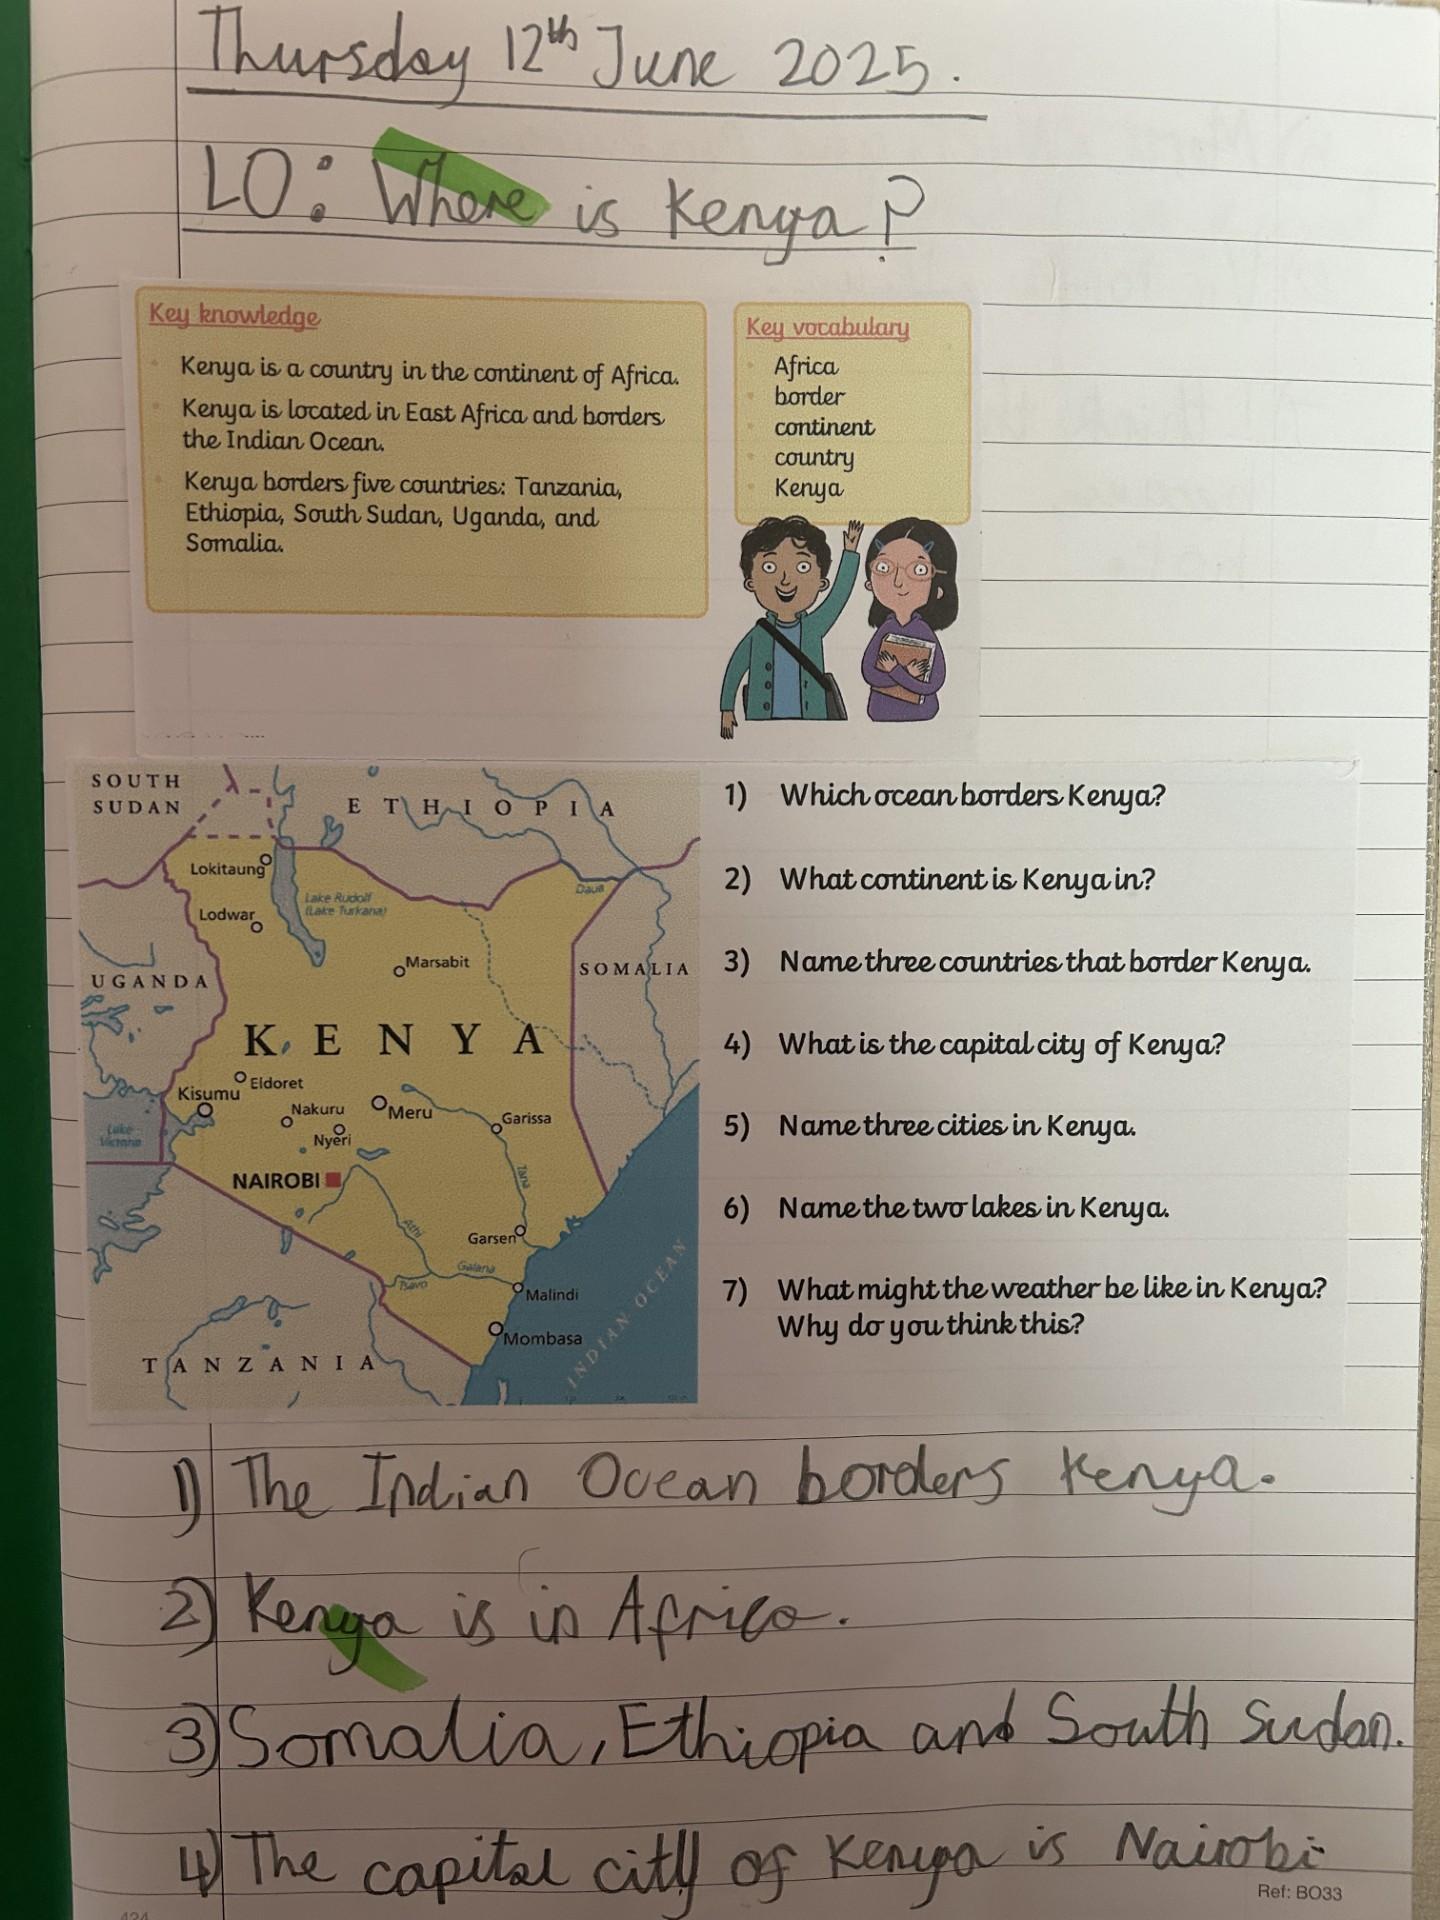 Thursday 12th June 2025.
LO: Where is Kenya?
Key knowledge
Kenya is a country in the continent of Africa.
Kenya is located in East Africa and borders
the Indian Ocean.
Kenya borders five countries: Tanzania,
Ethiopia, South Sudan, Uganda, and
Somalia.
Key vocabulary
Africa
border
continent
country
Kenya
SOUTH
SUDAN
ETHIOPIA
Lokitaung
Lake Rudolf
(Lake Turkana)
Daua
Lodwar
Marsabit
SOMALIA
UGANDA
KENYA
Eldoret
Kisumu
Nakuru
Meru
Garissa
Nyeri
Lake
Victoria
NAIROBI
Tana
Athi
Garsen
Galana
Tsavo
Malindi
Mombasa
INDIAN OCEAN
TANZANIA
1) Which ocean borders Kenya?
2) What continent is Kenya in?
3) Name three countries that border Kenya.
4) What is the capital city of Kenya?
5) Name three cities in Kenya.
6) Name the two lakes in Kenya.
7) What might the weather be like in Kenya?
Why do you think this?
1) The Indian Ocean borders Kenya.
2) Kenya is in Africa.
3) Somalia, Ethiopia and South Sudan.
4) The capital city of Kenya is Nairobi
Ref: BO33